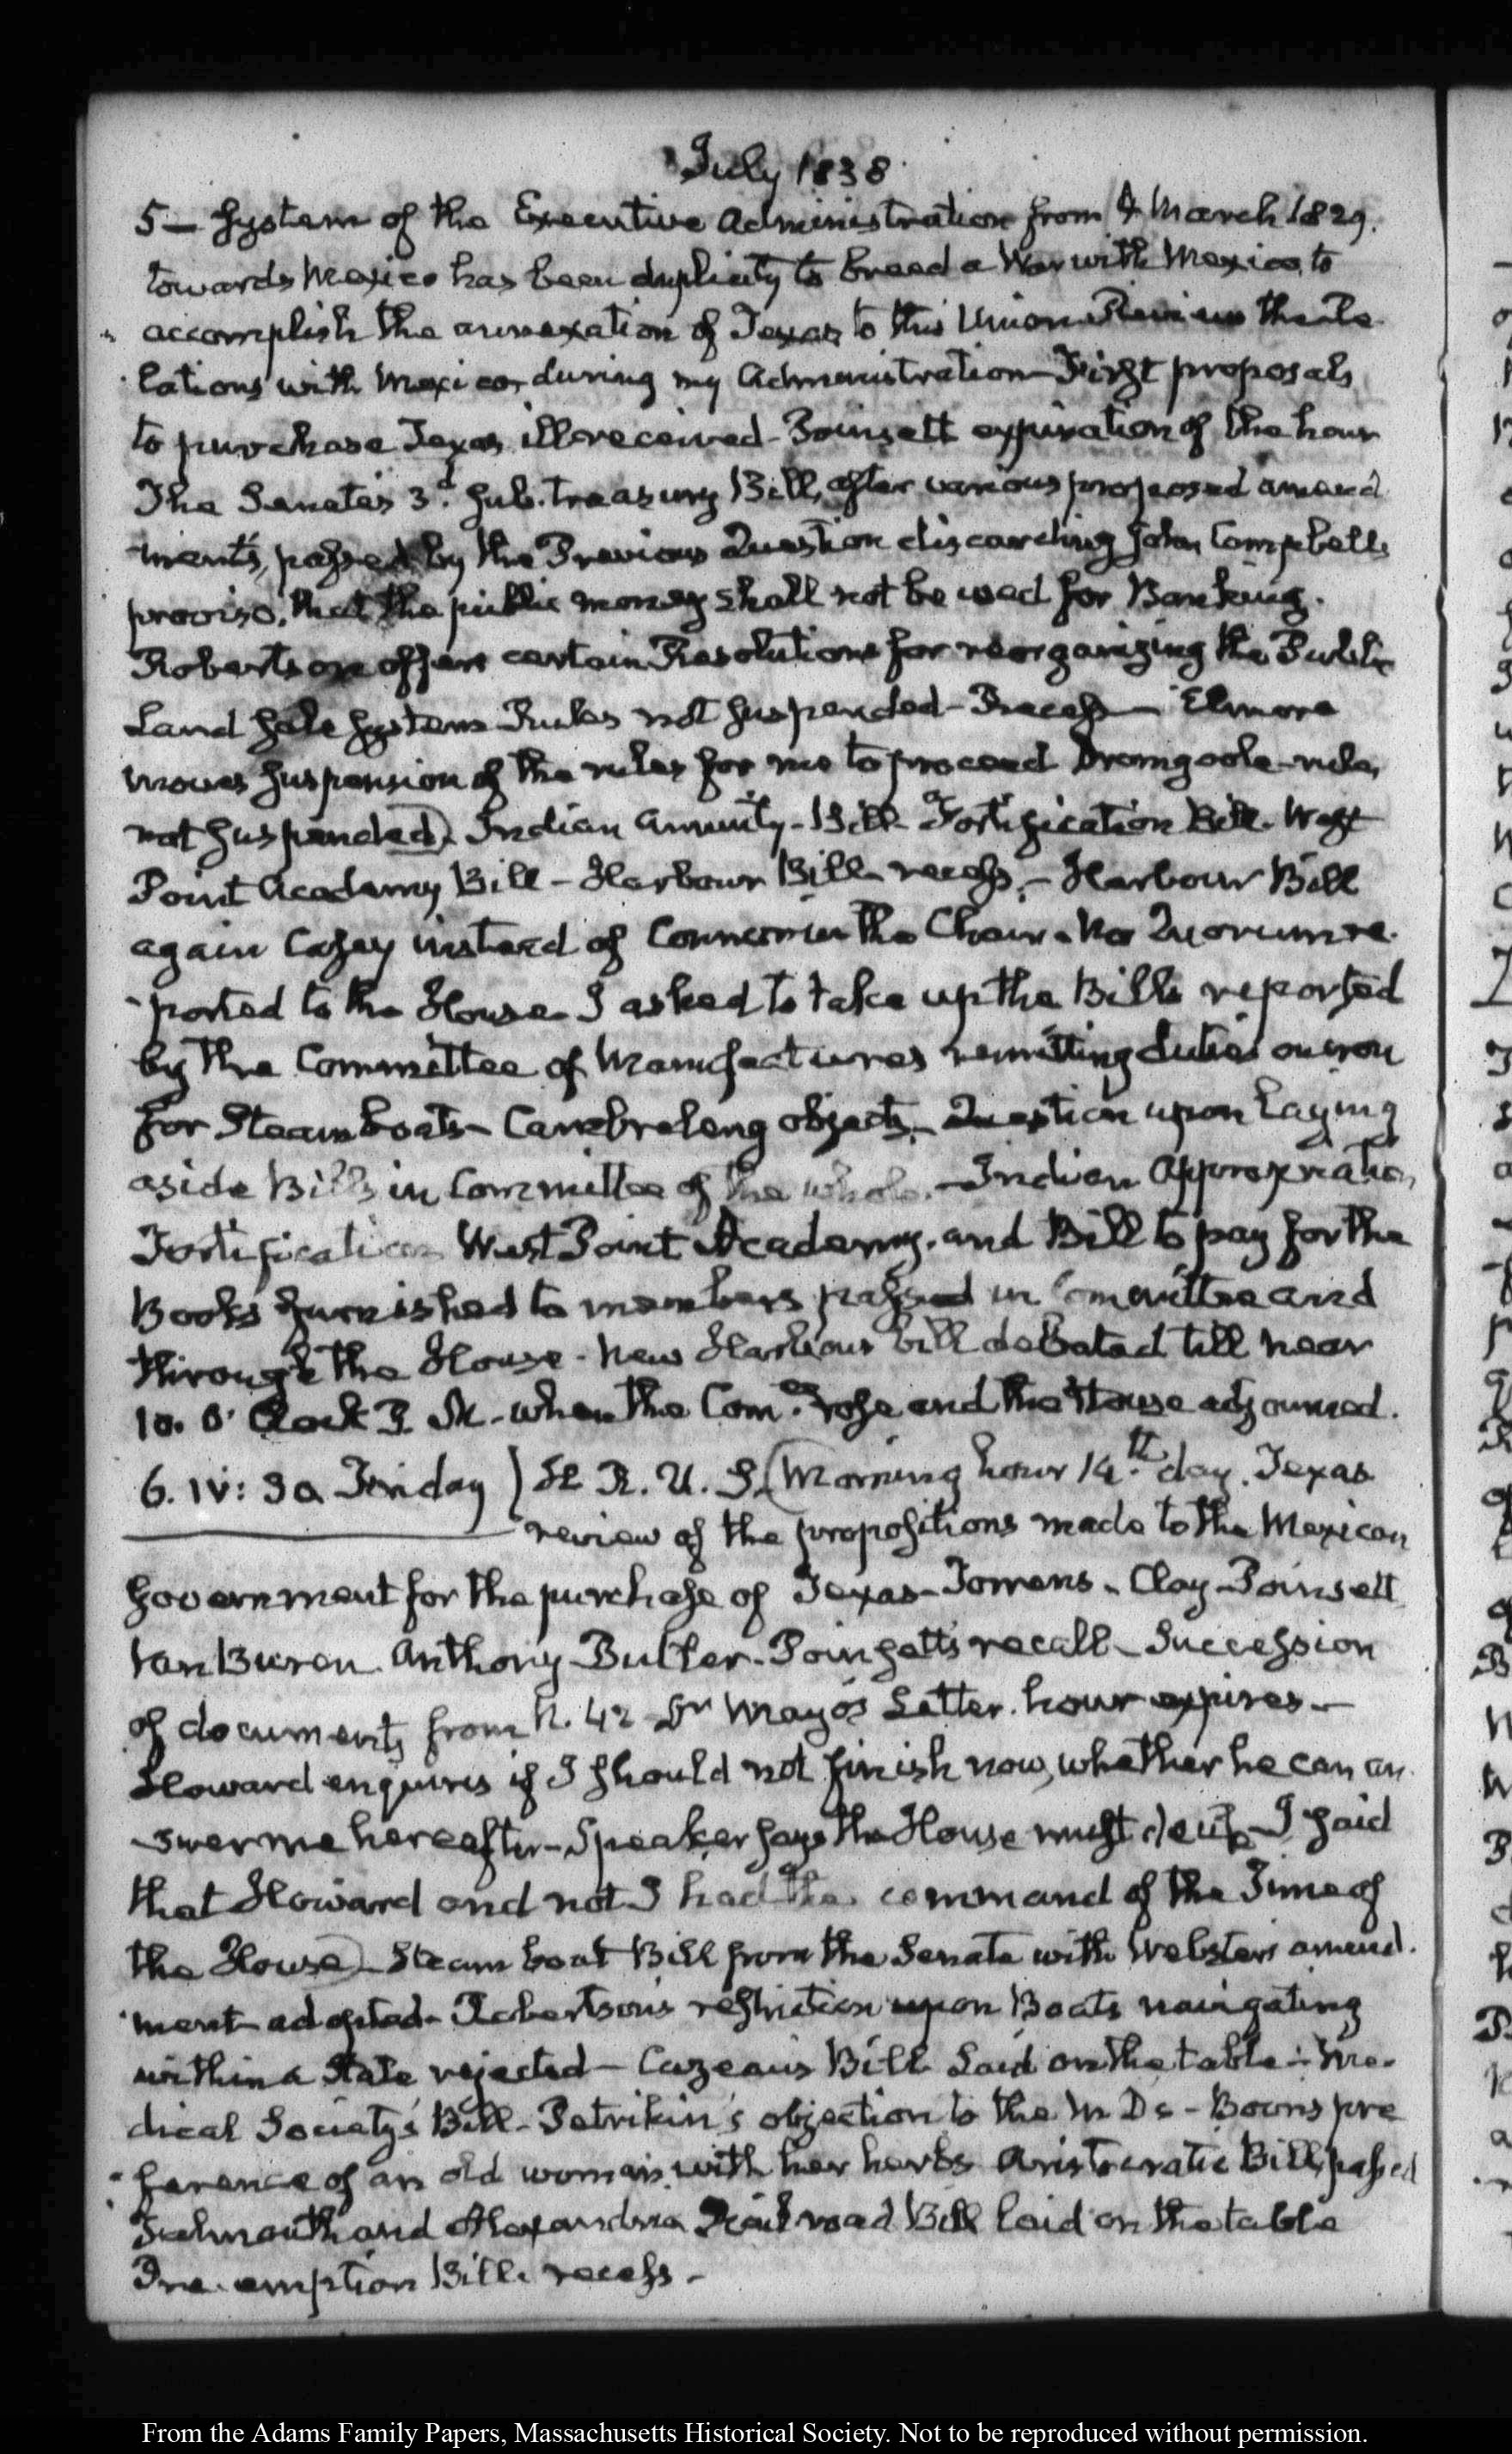 July 1838
5 — System of the Executive Administration from 4 March 1829.
towards Mexico has been duplicity to breed a War with Mexico, to
accomplish the annexation of Texas to this Union Review the Re
lations with Mexico, during my Administration First proposals
to purchase Texas ill received - Poinsett expiration of the hour
The Senate's 3d. Sub. treasury Bill, after various proposed amend
ments, passed by the Previous Question discarding John Campbell's
proviso, that the public money shall not be used for Banking.
Robertson offers certain Resolutions for reorganizing the Public
Land Sale System Rules not suspended - Recess - Elmore
moves suspension of the rules for me to proceed Dromgoole - rules
not suspended). Indian annuity - Bill - Fortification Bill - West
Point Academy Bill - Harbour Bill - recess - Harbour Bill
again Casey instead of Connor in the Chair - No Quorum re-
ported to the House - I asked to take up the Bills reported
by the Committee of Manufactures remitting duties on iron
for Steam boats - Cambreleng objects - Question upon laying
aside Bills in Committee of the whole. - Indian Appropriation,
Fortification West Point Academy, and Bill to pay for the
Books furnished to members passed in Committee and
through the House - New Harbour bill debated till near
10. O'Clock P. M. - when the Comee. rose and the House adjourned.
6. IV: 30. Friday ) H. R. U. S. (Morning hour 14.th day. Texas
review of the propositions made to the Mexican
Government for the purchase of Texas - Torrens - Clay - Poinsett
Van Buren. Anthony Butler - Poinsett's recall - Succession
of documents from N. 42 Dr Mayo's Letter. hour expires -
Howard enquires if I should not finish now, whether he can an-
swer me hereafter - Speaker says the House must decide - I said
that Howard and not I had the command of the Time of
the House) - Steam boat Bill from the Senate with Webster's amend-
ment adopted - Robertson's restriction upon Boats navigating
within a State rejected - Cazeau's Bill Laid on the table - Me-
dical Society's Bill - Petrikin's objection to the M Ds - Boon's pre
ference of an old woman, with her herbs Aristocratic Bill, passed
Falmouth and Alexandria Rail road Bill laid on the table
Pre-emption Bill. recess -
From the Adams Family Papers, Massachusetts Historical Society. Not to be reproduced without permission.